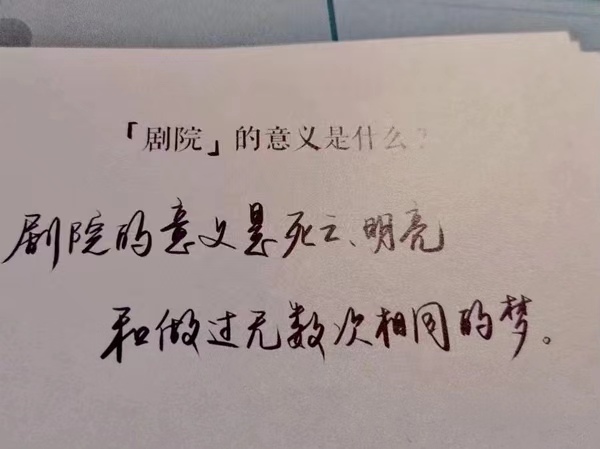 「剧院」的意义是什么?
剧院的意义是死亡、明亮
和做过无数次相同的梦。